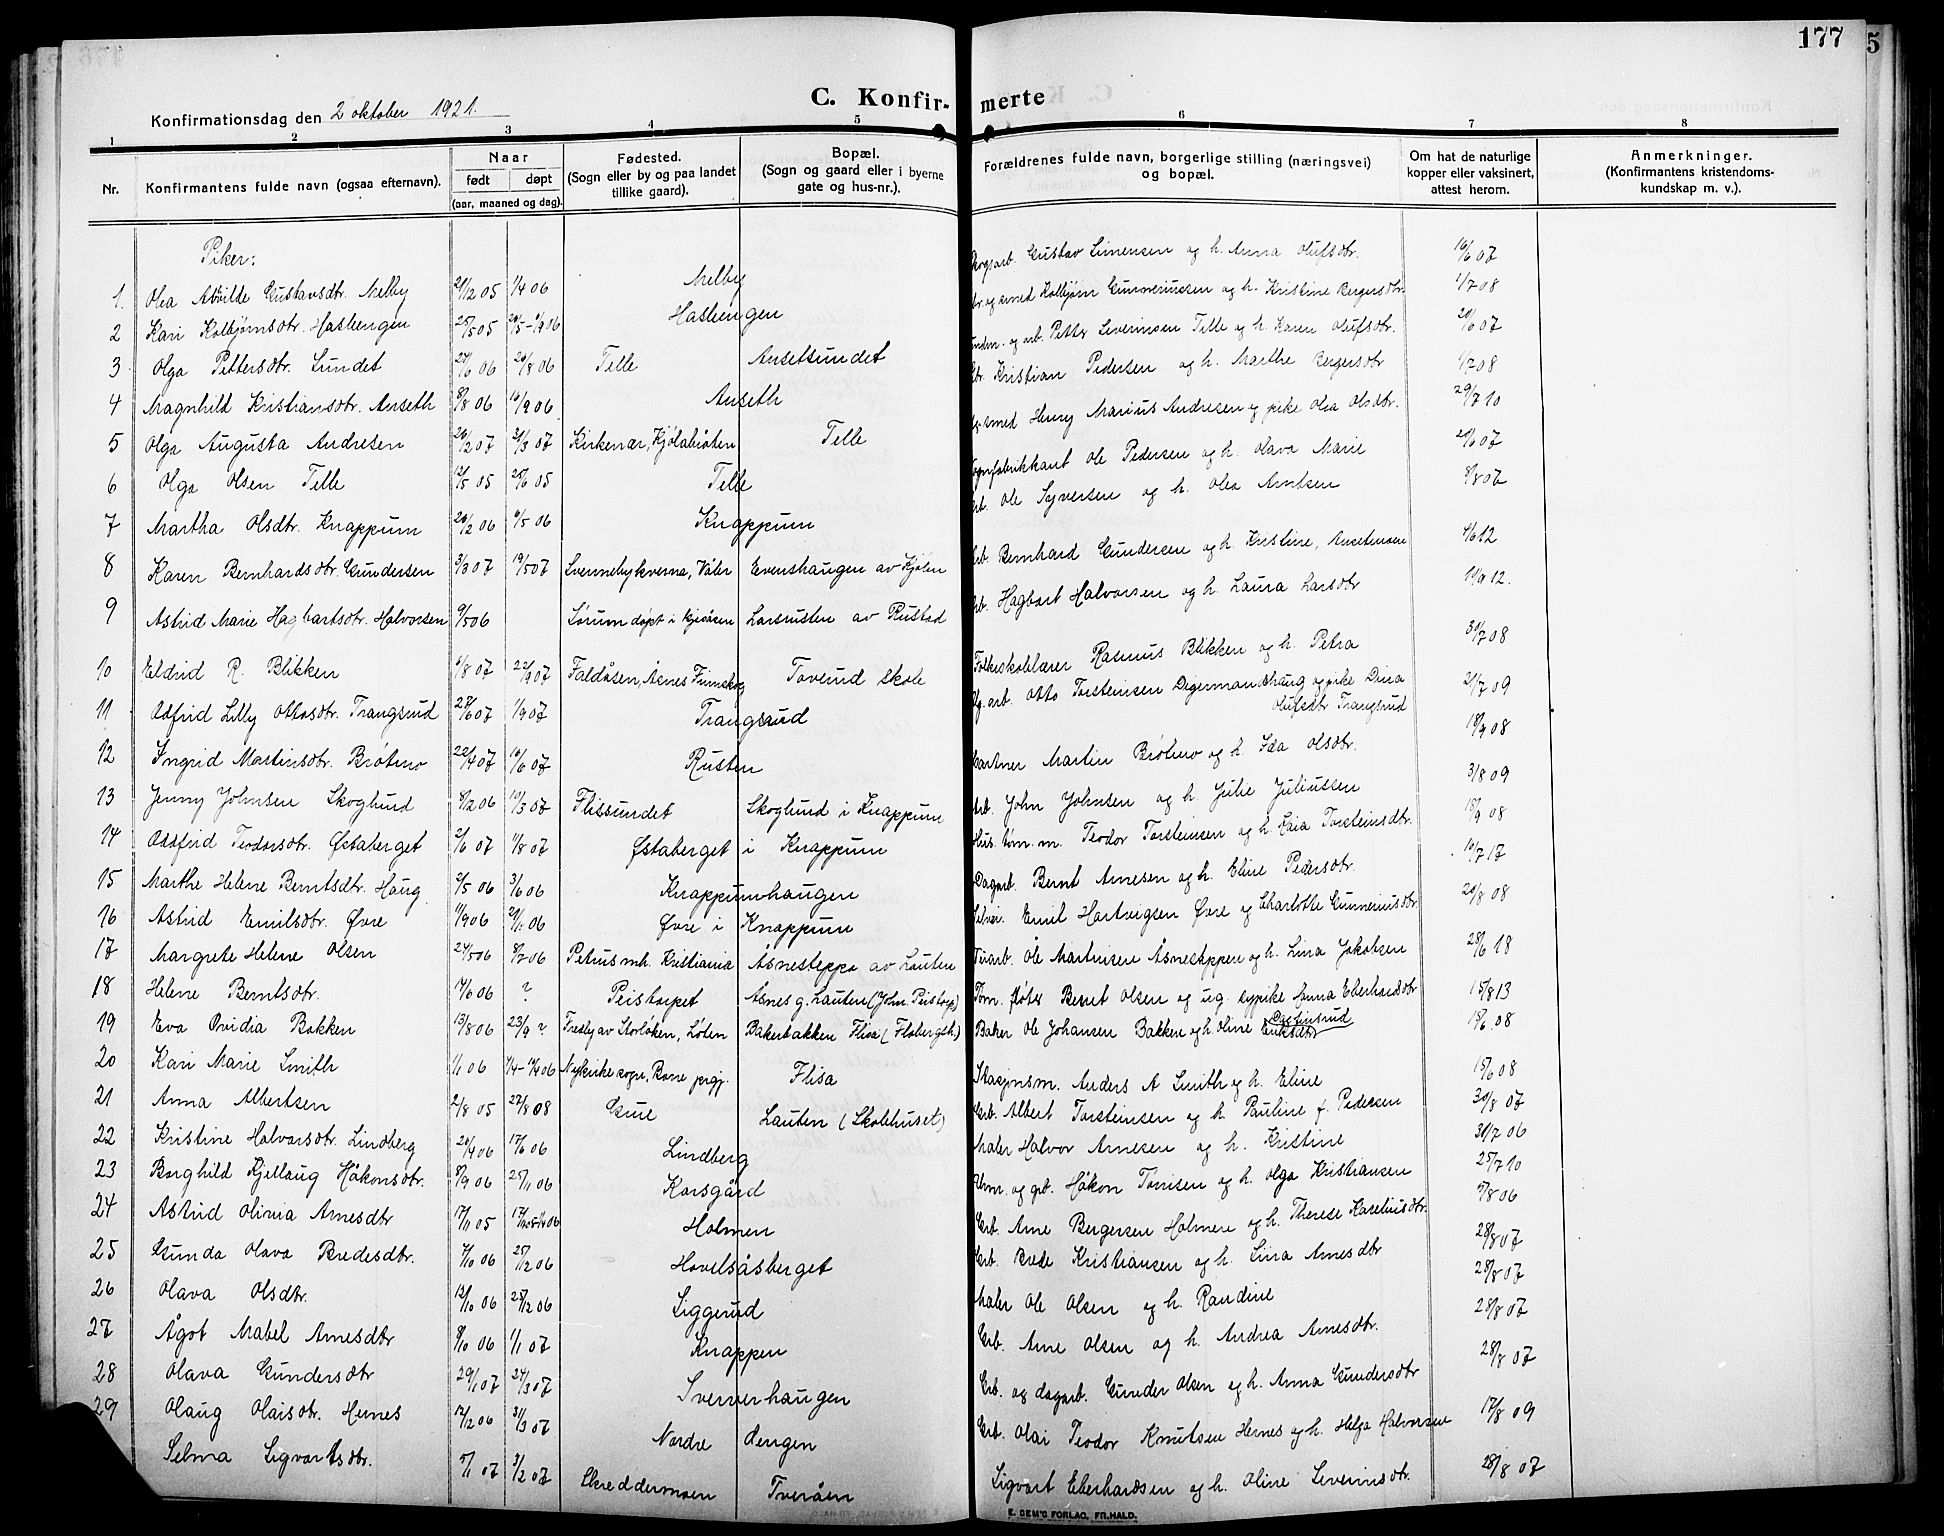 177
5
C. Konfir-
merte
Konfirmationsdag den 2 oktober 1921.
1 2 3 4 5 6 7 8
Nr. Konfirmantens fulde navn (ogsaa efternavn). Naar født døpt (aar, maaned og dag). Fødested. (Sogn eller by og paa landet tillike gaard). Bopæl. (Sogn og gaard eller i byerne gate og hus-nr.). Forældrenes fulde navn, borgerlige stilling (næringsvei) og bopæl. Om hat de naturlige kopper eller vaksinert, attest herom. Anmerkninger. (Konfirmantens kristendoms-kundskap m. v.).
Piker:
1. Olea Gustavsdtr. Melby 21/12 05 1/4 06 Melby Gustav Simensen og h. Anna Olufsdtr. 16/6 07
2 Kari Kolbjørnsdtr. Hasliengen 25/5 05 Hasliengen smed Kolbjørn Gunneriussen og h. Kristine Bergersdtr. 1/7 08
3 Olga Pettersdtr. Sundet 27/6 06 26/8 06 Telle Ansetsundet og arb. Petter Severinsen Telle og h. Karen Olufsdtr. 20/6 07
4 Magnhild Kristiansdtr. Anseth 8/8 06 16/9 06 Anseth Kristian Pedersen og h. Marthe Bergersdtr 1/7 08
5 Olga Augusta Andresen 20/2 07 31/3 07 Kirkenær, Kjølabråten Telle smed Henry Marius Andresen og pike Olea Olsdtr. 29/7 10
6 Olga Olsen Telle 12/5 05 25/6 05 Telle Ole Pedersen og h. Olava Marie 20/6 07
7 Martha Olsdtr. Knappum 20/2 06 6/5 06 Knappum Ole Syversen og h. Olea Arntsen 8/8 07
8 Karen Bernhardsdtr. Gundersen 3/3 07 19/5 07 Svennebykverna, Våler Evenshaugen av Kjølen Bernhard Gundersen og h. Kristine, 4/6 12
9 Astrid Marie Hagbartsdtr. Halvorsen 9/5 06 Sørum døpt i Larsrusten av Rustad Hagbart Halvorsen og h. Laura Larsdtr 10/9 12.
10 Eldrid R. Blikken 6/8 07 22/9 07 Faldåsen, Åsnes Finnskog Toverud skole Folkeskolelærer Rasmus Blikken og h. Petra 30/7 08
11 Odfrid Lilly Ottosdtr. Trangsrud 27/6 07 1/9 07 Trangsrud arb. Otto Torsteinsen Degermandshaug og pike Dina Olufsdtr Trangsrud 21/7 09
12 Ingrid Martinsdtr. Bråtmo 22/4 07 16/6 07 Rusten Gartner Martin Bråtmo og h. Ida Olsdtr. 18/9 08
13 Jenny Johnsen Skoglund 8/2 06 10/3 07 Flissundet Skoglund i Knappum Arb. John Johnsen og h. Julie Juliussen 3/8 09
14 Oddfrid Teodorsdtr. Østaberget 2/6 07 11/8 07 Østaberget i Knappum Hus. tøm. m. Teodor Torsteinsen og h. Kaia Torsteinsdtr. 18/9 08
15 Marthe Helene Berntsdtr. Haug 2/5 06 3/6 06 Knappumhaugen Dagarb. Bernt Arnesen og h. Eline Pedersdtr. 10/7 17
16 Astrid Emilsdtr. Øvre 11/9 06 Øvre i Knappum Selvei. Emil Hartvigsen Øvre og Charlotte Gunneriusdtr 20/8 08
17 Margrete Helene Olsen 24/5 06 8/7 06 Petrus mh. Kristiania Åsnesteppa av Lauten Ole Martinsen Åsneseppen og h. Lina Jakobsen 28/6 18
18 Helene Berntsdtr. 14/6 06 ? Peistorpet Åsnes g. Lauten (John Peistorp) Tøm. fløter Bernt Olsen og ug. sypike Anna Eberhardsdtr 15/8 13
19 Eva Ovidia Bakken 13/8 06 23/9 ? av Storløken, Løten Bakerbakken Flisa (Flobergsh.) Baker Ole Johansen Bakken og h. Oline 15/6 08
20 Kari Marie Smith 1/1 06 Nykirke sogn, Borre prgj. Flisa Stasjonsm. Anders A Smith og h. Eline 15/6 08
21 Anna Albertsen 2/8 05 27/8 08 Grue Lauten (Skolehuset) Arb. Albert Torsteinsen og h. Pauline f. Pedersen 30/8 07
22 Kristine Halvorsdtr. Lindberg 20/4 06 17/6 06 Lindberg Maler Halvor Arnesen og h. Kristine 31/7 06
23 Borghild Kjellaug Håkonsdtr. 8/9 06 25/11 06 Korsgård og gbr. Håkon Tomsen og h. Olga Kristiansen 25/7 10
24 Astrid Olivia Arnesdtr 17/11 05 Holmen Arb. Arne Bergersen Holmen og h. Therese Kareliusdtr. 5/8 06
25 Gunda Olava Bredesdtr. 7/10 06 25/12 06 Hovelsåsberget Arb. Brede Kristiansen og h. Lina Arnesdtr 28/8 07
26 Olava Olsdtr. 13/10 06 25/12 06 Siggerud Maler Ole Olsen og h. Randine 28/8 07
27 Ågot Mabel Arnesdtr 8/10 06 1/1 07 Knappen Arb. Arne Olsen og h. Andrea Arnesdtr. 28/8 07
28 Olava Gundersdtr 29/1 07 24/3 07 Sververhaugen Arb. og dagarb. Gunder Olsen og h. Anna Gundersdtr 28/8 07
29 Olaug Olaisdtr. Hernes 12/2 06 31/3 07 Nordre Lengen Arb. Olai Teodor Knutsen Hernes og h. Helga Halvorsen 17/8 09
Selma Sigvartsdtr. 5/1 07 3/2 07 Skreddermoen Tveråen Sigvart Eberhardsen og h. Oline Severinsdtr. 28/8 07
E. SEM'S FORLAG, FR.HALD.